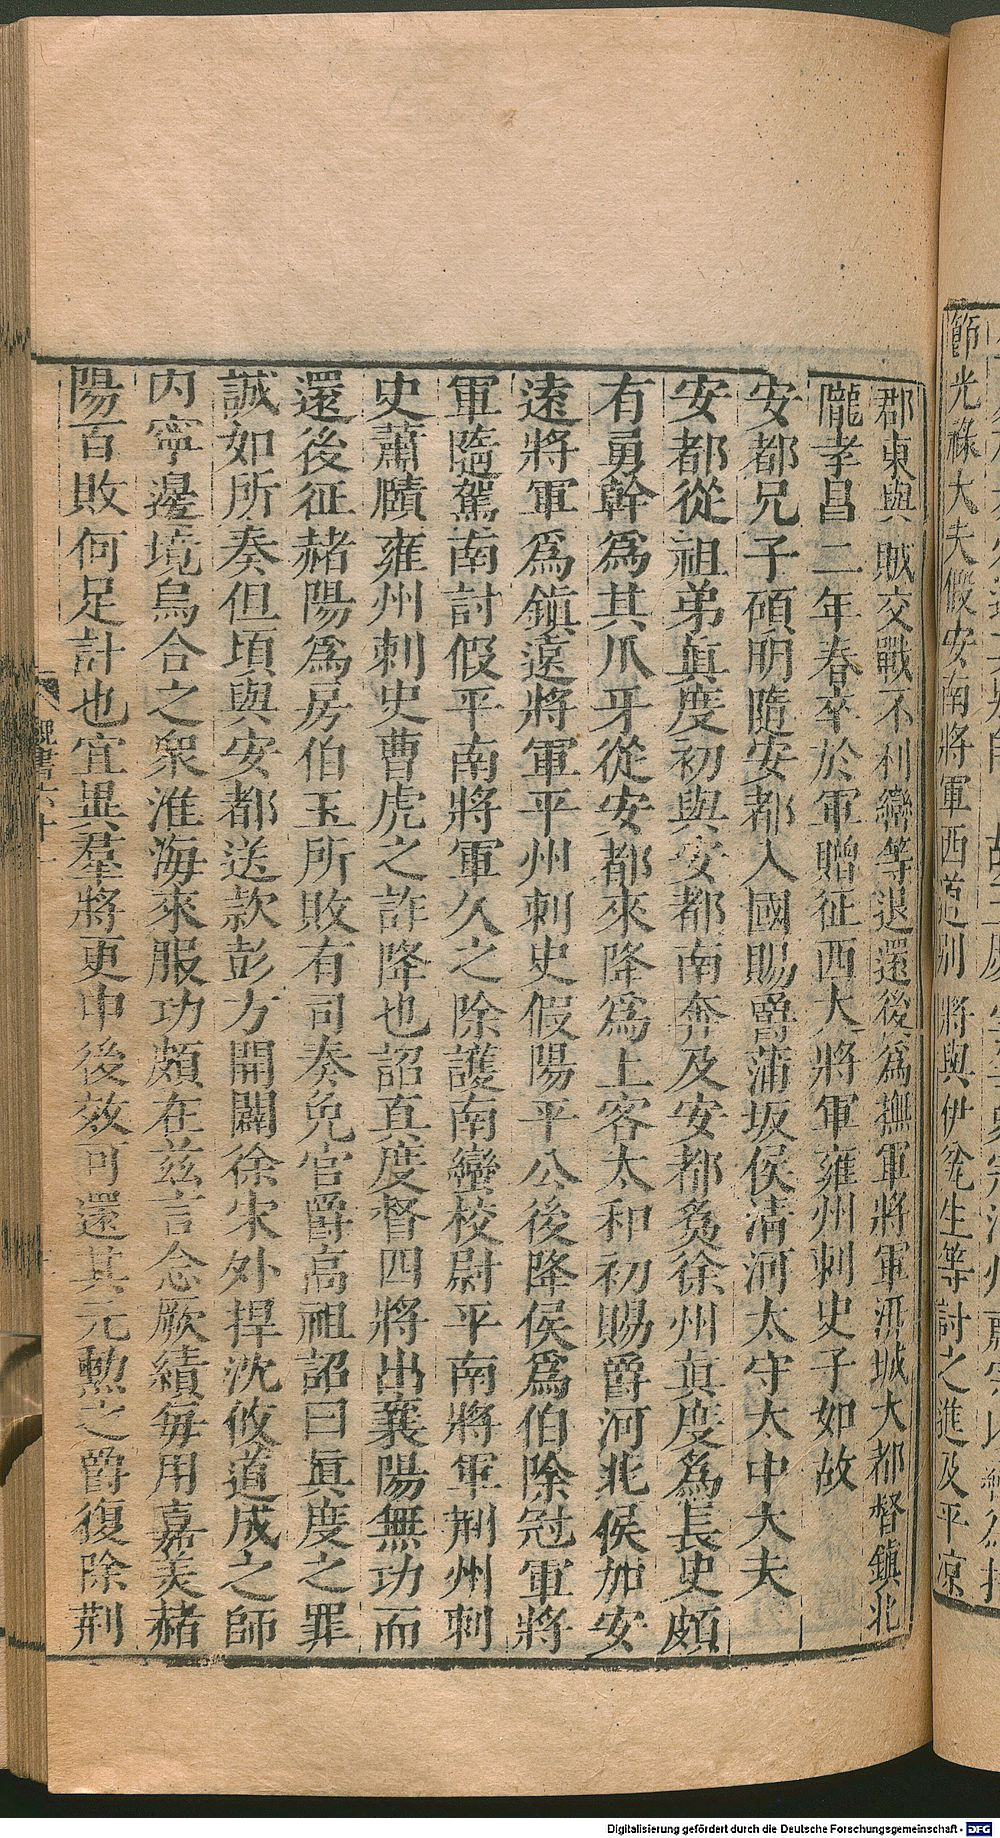 節光祿大夫假安南將軍西道別將與伊瓫生等討之進及平凉
郡東與賊交戰不利巒等退還後爲撫軍將軍汧城大都督鎮北
隴孝昌二年春卒於軍贈征西大將軍雍州刺史子如故
安都兄子碩明隨安都入國賜爵蒲坂侯清河太守太中大夫
安都從祖弟眞度初與安都南奔及安都爲徐州眞度爲長史頗
有勇幹爲其爪牙從安都來降爲上客太和初賜爵河北侯加安
遠將軍爲鎮遠將軍平州刺史假陽平公後降侯爲伯除冠軍將
軍隨駕南討假平南將軍久之除護南蠻校尉平南將軍荊州刺
史蕭賾雍州刺史曹虎之詐降也詔眞度督四將出襄陽無功而
還後征赭陽爲房伯玉所敗有司奏免官爵高祖詔曰眞度之罪
誠如所奏但頃與安都送款彭方開闢徐宋外捍沈攸道成之師
內寧邊境烏合之衆淮海來服功頗在茲言念厥績每用嘉美赭
陽百敗何足計也宜異羣將更申後效可還其元勲之爵復除荊
魏書六十一
Digitalisierung gefördert durch die Deutsche Forschungsgemeinschaft - DFG